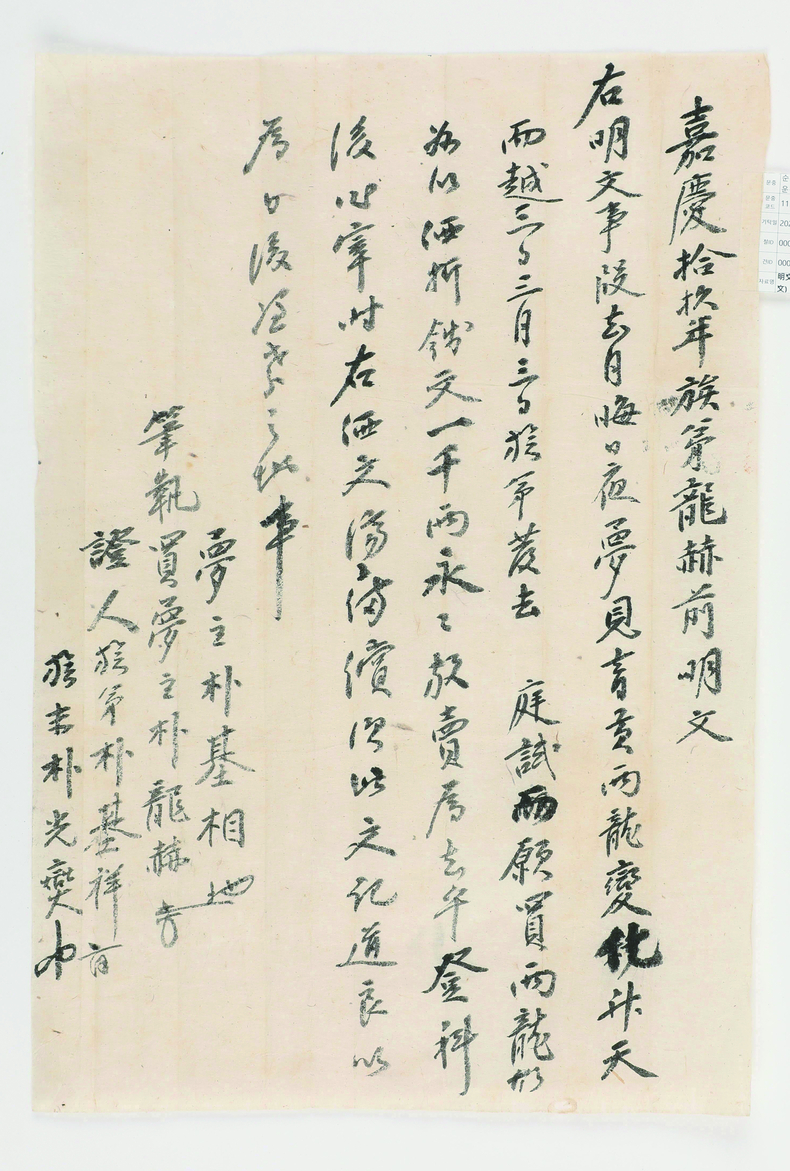 嘉慶拾玖年族弟龍赫前明文
右明文事段去月晦日夜夢見青黃兩龍變化升天
而越三日三月三日族弟發去 庭試 願買兩龍故
以価折錢文一千兩永〻放賣爲去乎登科
後 時右価文 備償 此文記導良以
爲日後憑考之地事
夢主朴基相
筆執買夢主朴龍赫
證人族弟朴基祥
族末朴光燮